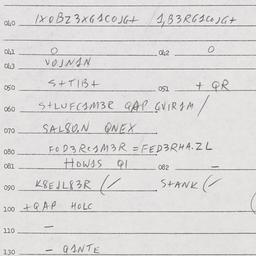 040 1X0BZ3XG1COJG+ / 1,B3RG1COJG+
041 0 042 0
043 VOJN1N
050 S+TIB+ 051 + QR
060 S+LUFC1M3R QAP GVIR1M /
070 SAL80.N QNEX
080 FOD3RC1M3R = FED3RHA.ZL
081 HOW1S QI 082 —
090 K8EJL83R (/ S+ANK (/
100 +QAP HOLC
110 —
130 — Q1NTE